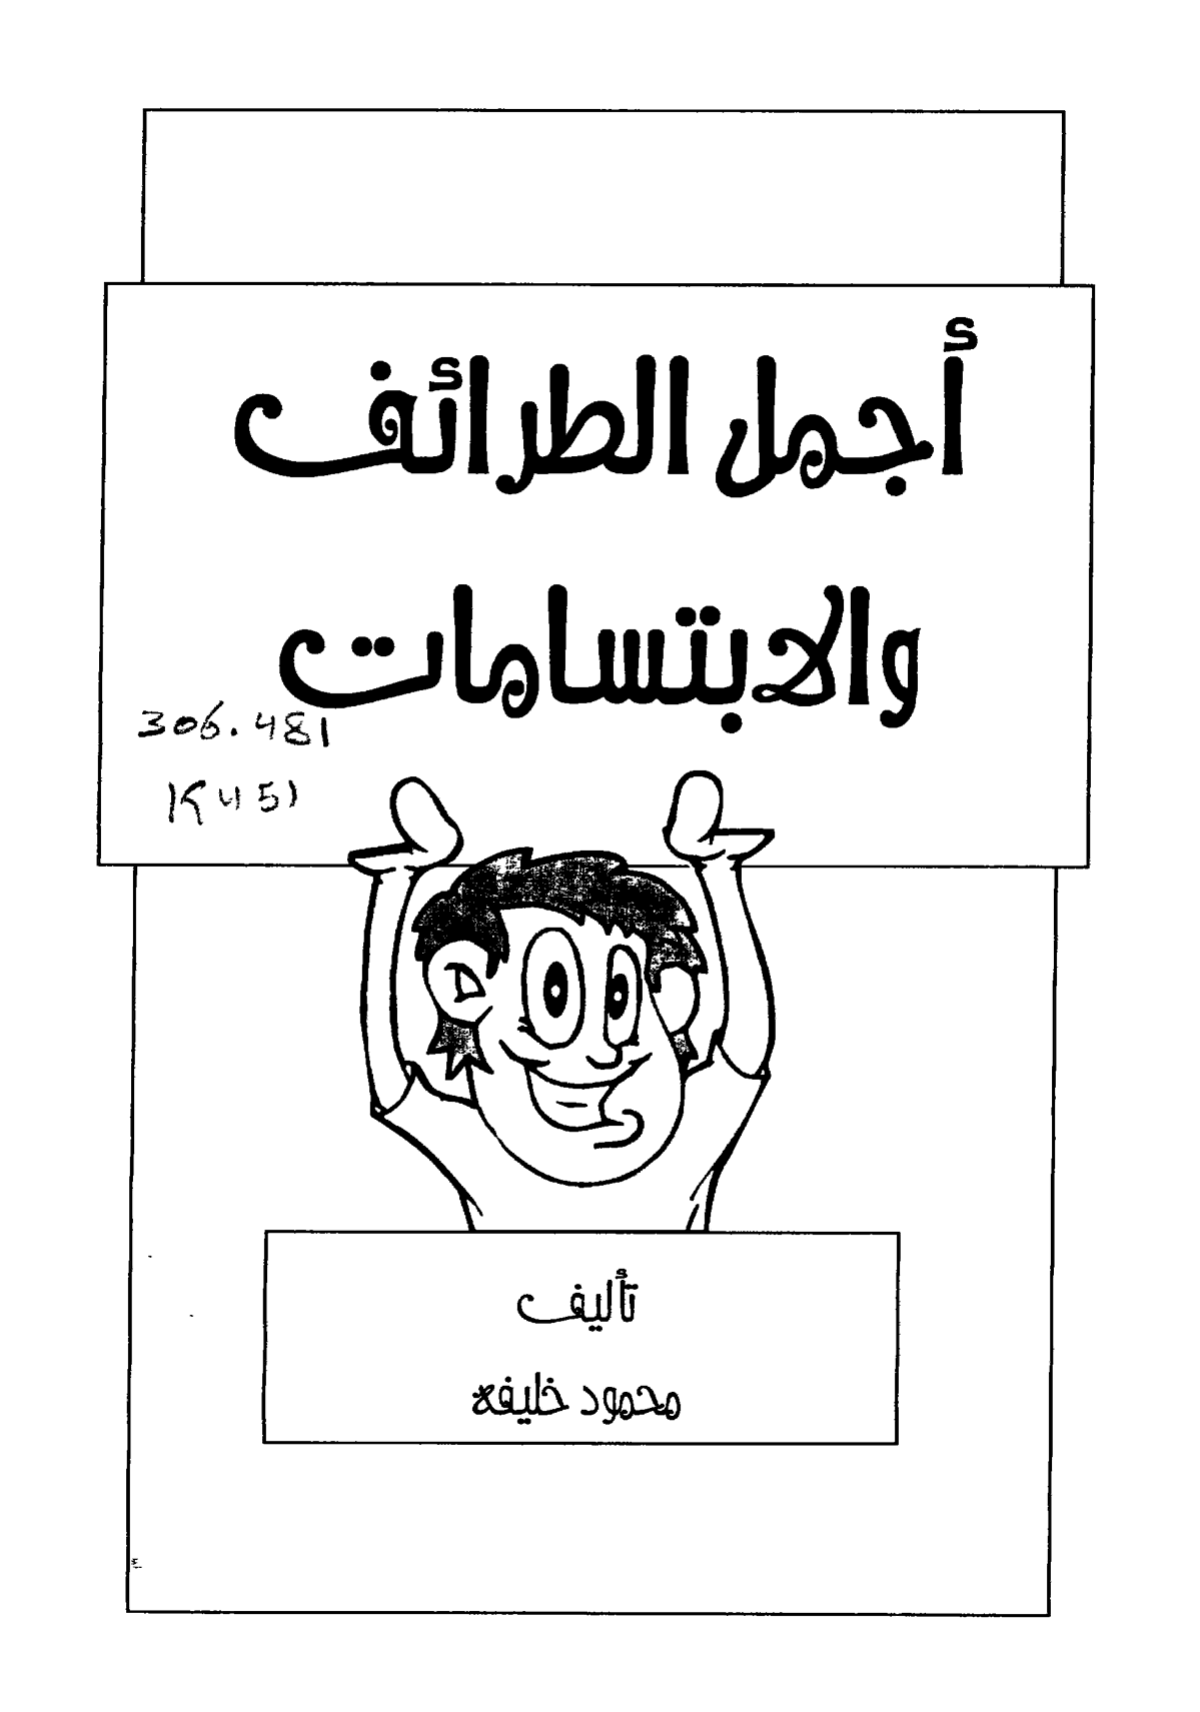 أجمل الطرائف
والابتسامات
306.481
K451
تأليف
محمود خليفه